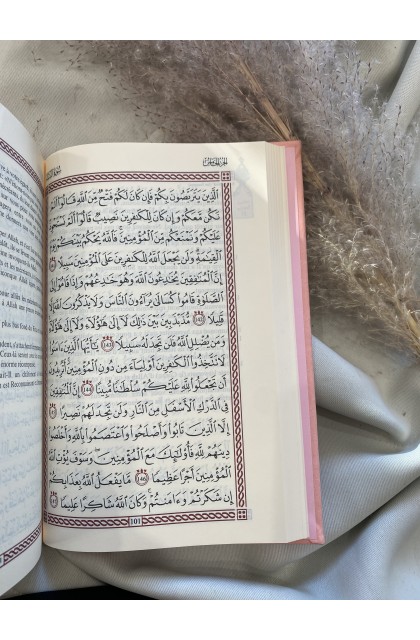 الجزء الخامس
ٱلَّذِينَ يَتَرَبَّصُونَ بِكُمْ فَإِن كَانَ لَكُمْ فَتْحٌ مِّنَ ٱللَّهِ قَالُوٓا۟ أَلَمْ
نَكُن مَّعَكُمْ وَإِن كَانَ لِلْكَٰفِرِينَ نَصِيبٌ قَالُوٓا۟ أَلَمْ نَسْتَحْوِذْ
عَلَيْكُمْ وَنَمْنَعْكُم مِّنَ ٱلْمُؤْمِنِينَ ۚ فَٱللَّهُ يَحْكُمُ بَيْنَكُمْ يَوْمَ
ٱلْقِيَٰمَةِ ۗ وَلَن يَجْعَلَ ٱللَّهُ لِلْكَٰفِرِينَ عَلَى ٱلْمُؤْمِنِينَ سَبِيلًا ١٤١
إِنَّ ٱلْمُنَٰفِقِينَ يُخَٰدِعُونَ ٱللَّهَ وَهُوَ خَٰدِعُهُمْ وَإِذَا قَامُوٓا۟ إِلَى
ٱلصَّلَوٰةِ قَامُوا۟ كُسَالَىٰ يُرَآءُونَ ٱلنَّاسَ وَلَا يَذْكُرُونَ ٱللَّهَ إِلَّا
قَلِيلًا ١٤٢ مُّذَبْذَبِينَ بَيْنَ ذَٰلِكَ لَآ إِلَىٰ هَٰٓؤُلَآءِ وَلَآ إِلَىٰ هَٰٓؤُلَآءِ
وَمَن يُضْلِلِ ٱللَّهُ فَلَن تَجِدَ لَهُۥ سَبِيلًا ١٤٣ يَٰٓأَيُّهَا ٱلَّذِينَ ءَامَنُوا۟
لَا تَتَّخِذُوا۟ ٱلْكَٰفِرِينَ أَوْلِيَآءَ مِن دُونِ ٱلْمُؤْمِنِينَ ۚ أَتُرِيدُونَ
أَن تَجْعَلُوا۟ لِلَّهِ عَلَيْكُمْ سُلْطَٰنًا مُّبِينًا ١٤٤ إِنَّ ٱلْمُنَٰفِقِينَ
فِى ٱلدَّرْكِ ٱلْأَسْفَلِ مِنَ ٱلنَّارِ وَلَن تَجِدَ لَهُمْ نَصِيرًا ١٤٥
إِلَّا ٱلَّذِينَ تَابُوا۟ وَأَصْلَحُوا۟ وَٱعْتَصَمُوا۟ بِٱللَّهِ وَأَخْلَصُوا۟
دِينَهُمْ لِلَّهِ فَأُو۟لَٰٓئِكَ مَعَ ٱلْمُؤْمِنِينَ ۖ وَسَوْفَ يُؤْتِ ٱللَّهُ
ٱلْمُؤْمِنِينَ أَجْرًا عَظِيمًا ١٤٦ مَّا يَفْعَلُ ٱللَّهُ بِعَذَابِكُمْ
إِن شَكَرْتُمْ وَءَامَنتُمْ ۚ وَكَانَ ٱللَّهُ شَاكِرًا عَلِيمًا ١٤٧
101
plus bas fond du Feu
énorme récompense
est Reconnaissant